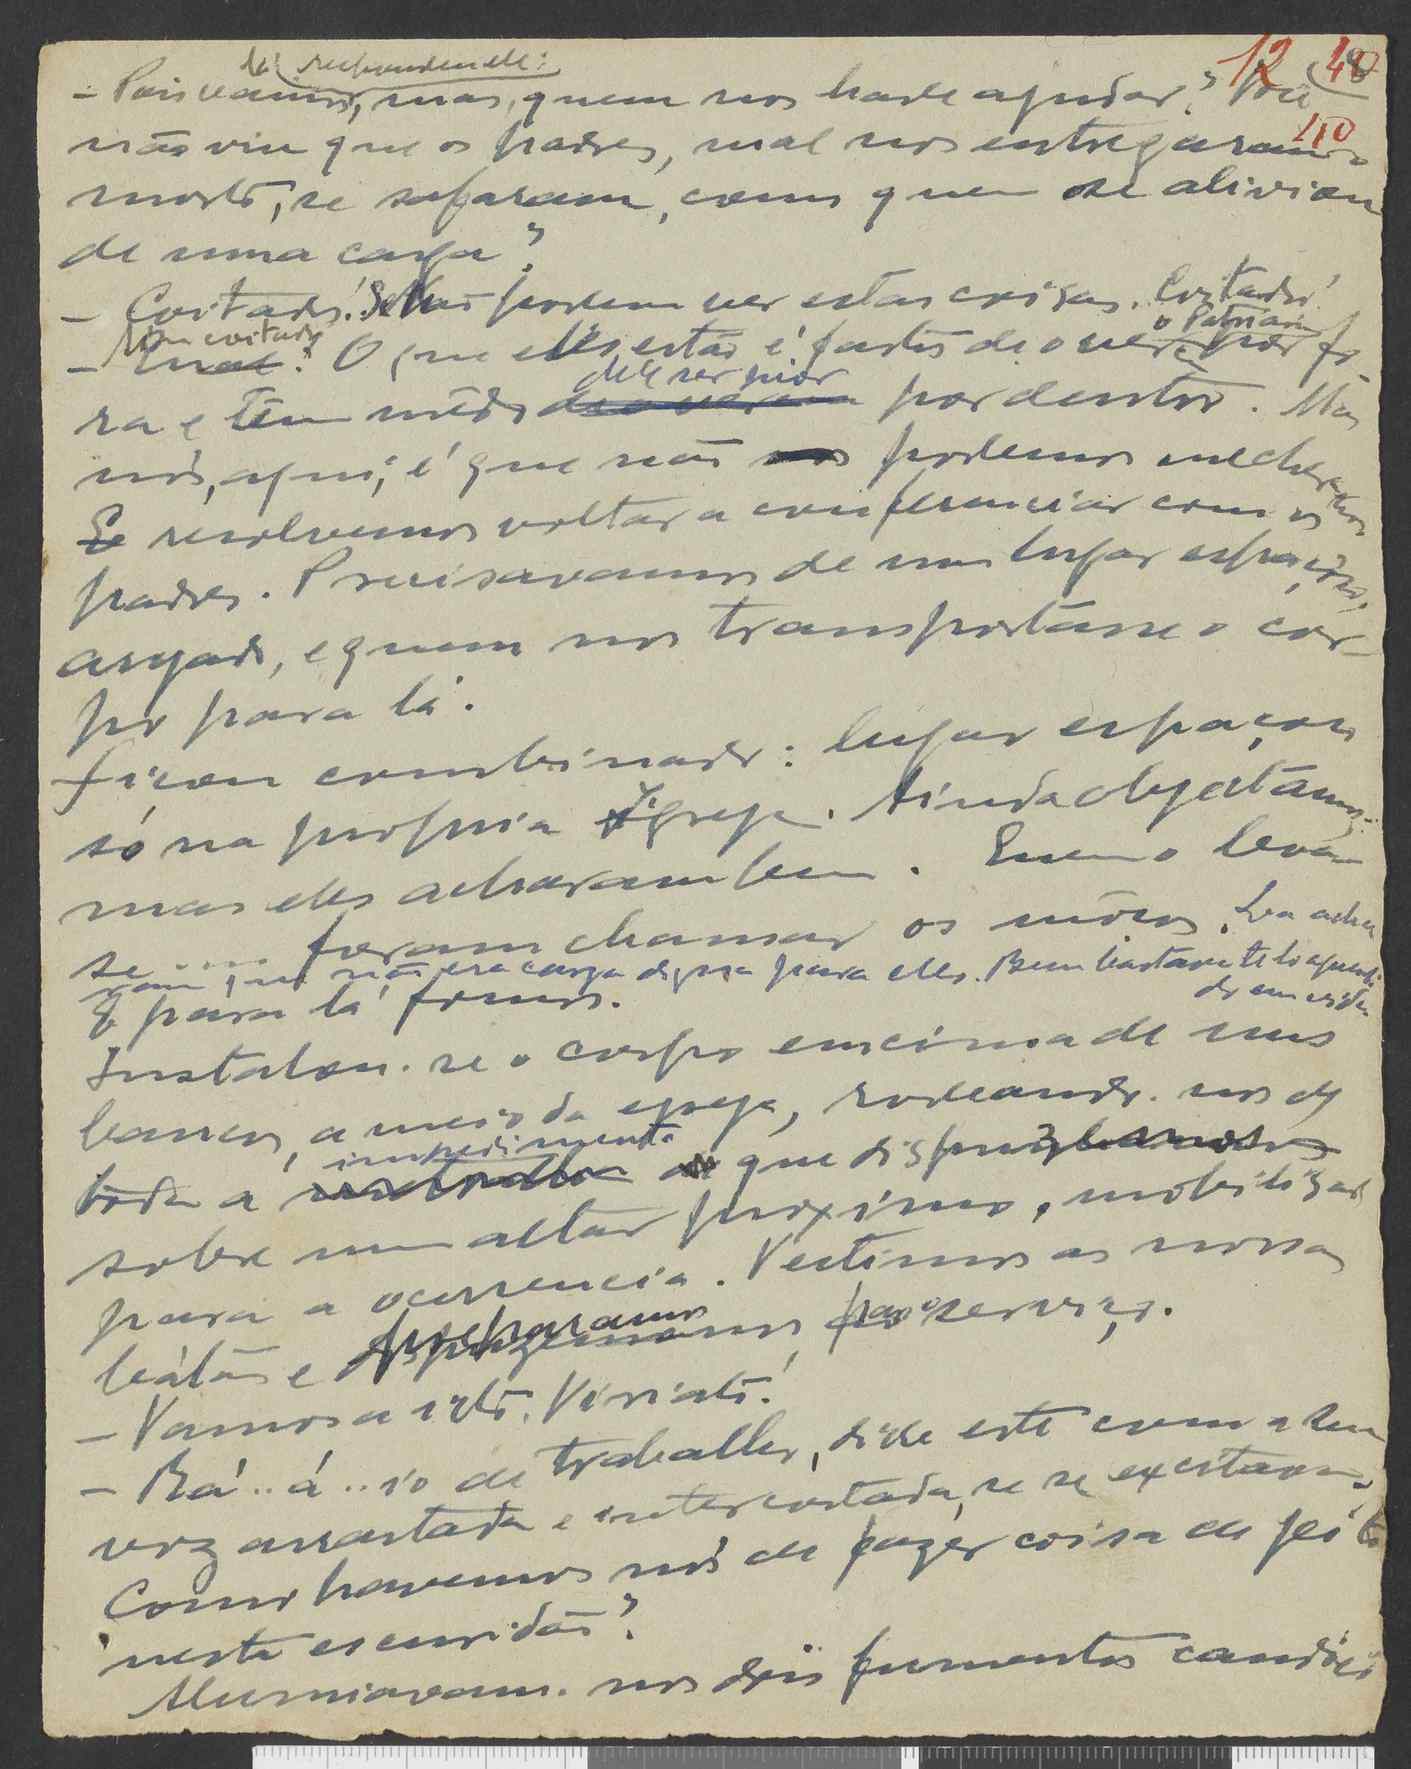 respondeu ele:
12 48
40
- Pois vamos, mas, quem nos hade ajudar? Você
não viu que os padres, mal nos entregaram o
morto, se safaram, como quem se aliviou
de uma carga?
- Coitados! Não podem ver estas coisas. Coitados!
- Quaes coitados? O que elles estão é fartos de o ver o Patriarca por fo-
ra e têm mêdo de o verem dele ser pior por dentro. Mas
nós, aqui, é que não nos podemos mecher nos
E resolvemos voltar a conferenciar com os
padres. Precisavamos de um lugar espaçoso,
arejado, e quem nos transportásse o cor-
po para lá.
Ficou combinado: lugar espaçoso
só na propria Igreja. Ainda objectámos:
mas eles acharam bem. Quem o leva
se .... foram chamar os môços. Lá acha
ram que não era carga digna para elles. Bem bastava tel-o aguenta
do em vida
E para lá fomos.
Instalou-se o corpo em cima de uns
bancos, a meio da egreja, rodeando-nos de
toda a impedimenta que dispuzemos
sobre um altar proximo, mobilizado
para a ocurrencia. Vestimos as nossas
batas e preparamos para o serviço.
- Vamos a isto, Viriato!
- Bá..á..io de traballer, disse este com a sua
voz arrastada e intercortada, se se exectava.
Como havemos nós de fazer coisa de geito
nesta escuridão?
Alumiavam-nos dois fumentos candieiros